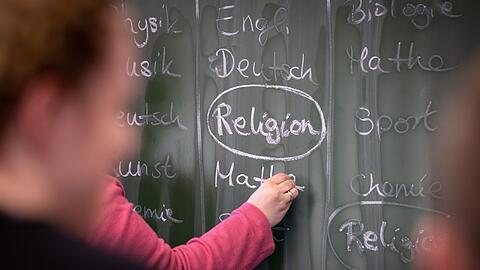 hysik
usik
eutsch
unst
emie
Engl.
Deutsch
Religion
Mathe
Biologie
Mathe
Sport
Chemie
Religion